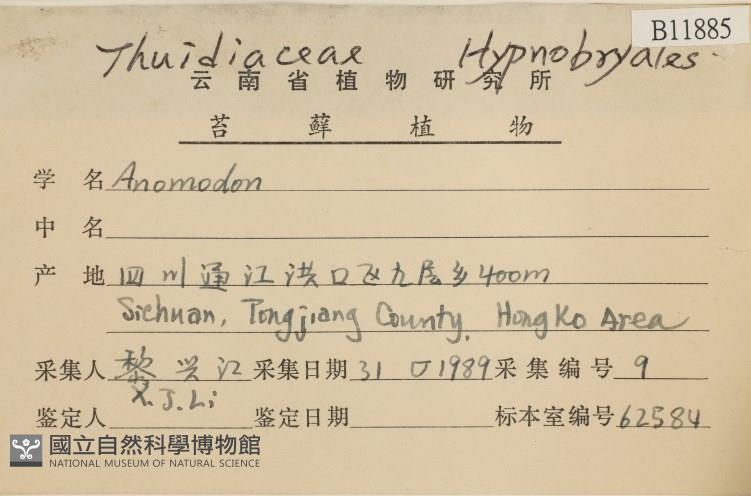 B11885
Thuidiaceae Hypnobryales.
云南省植物研究所
苔藓植物
学名 Anomodon
中名
产地 四川通江洪口区九层乡400m
Sichuan, Tongjiang County, HongKo Area
采集人 黎兴江 采集日期 31 1989 采集编号 9
X.J.Li
鉴定人 鉴定日期 标本室编号 62584
國立自然科學博物館
NATIONAL MUSEUM OF NATURAL SCIENCE